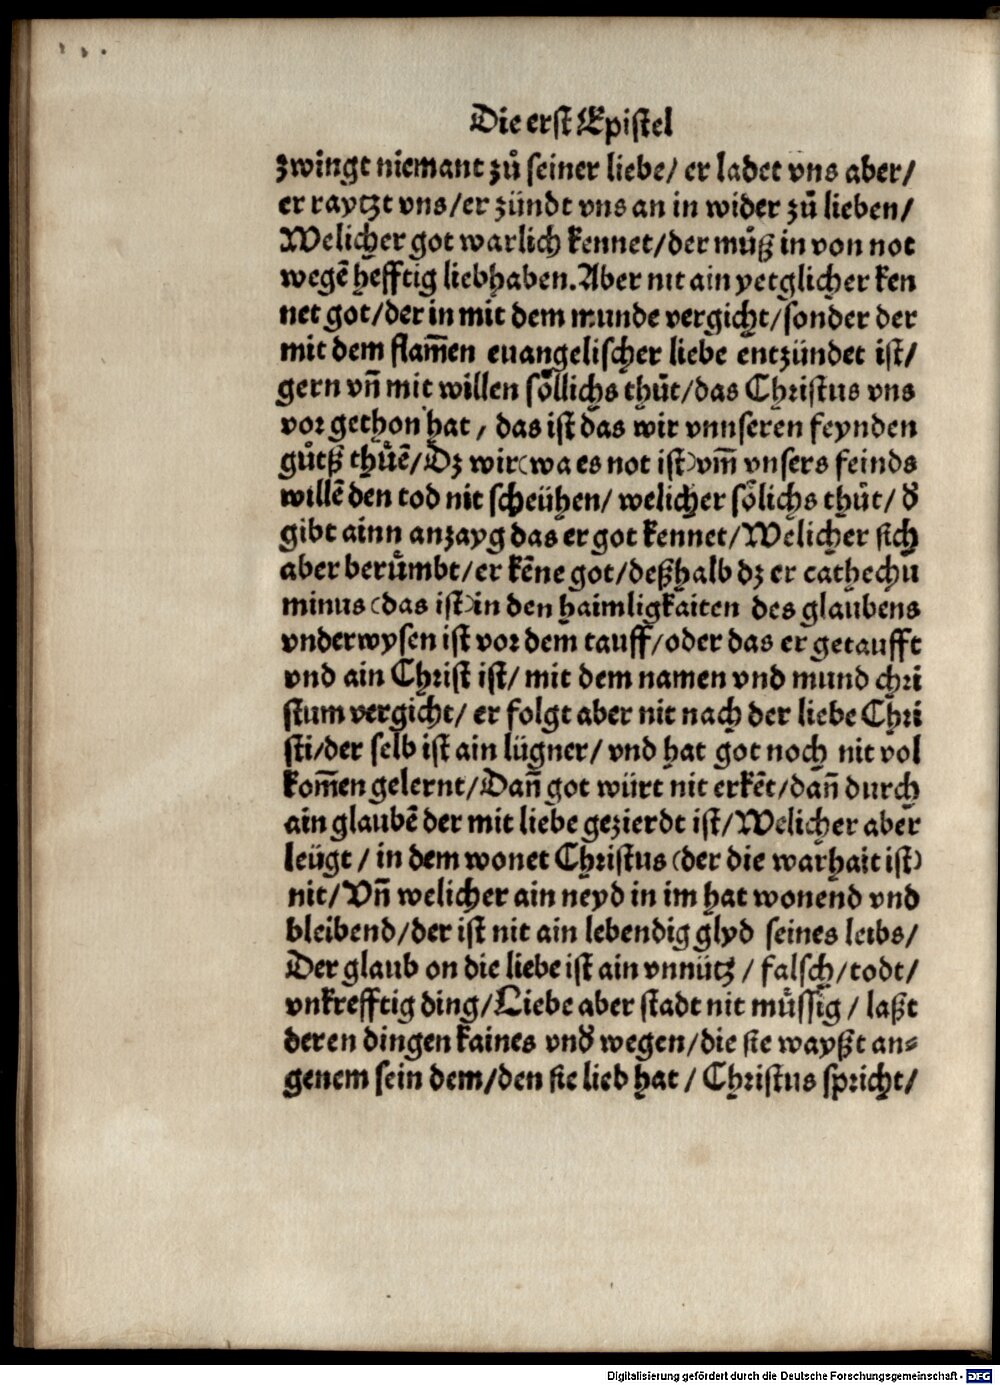 Die erst Epistel
zwingt niemant zů seiner liebe/ er ladet vns aber/
er raytzt vns/er zündt vns an in wider zů lieben/
Welicher got warlich kennet/der můß in von not
wegē hefftig liebhaben.Aber nit ain yetglicher ken
net got/der in mit dem munde vergicht/sonder der
mit dem flam̄en euangelischer liebe entzündet ist/
gern vn̄ mit willen soͤllichs thůt/das Christus vns
vor gethon hat, das ist das wir vnnseren feynden
gůtß thůē/Dz wir(wa es not ist)vm̄ vnsers feinds
willē den tod nit scheühen/ welicher soͤlichs thůt/ đ
gibt ainn anzayg das er got kennet/Welicher sich
aber berůmbt/er kēne got/deßhalb dz er cathechu
minus(das ist)in den haimligkaiten des glaubens
vnderwysen ist vor dem tauff/oder das er getaufft
vnd ain Christ ist/ mit dem namen vnd mund chri
stum vergicht/ er folgt aber nit nach der liebe Chri
sti/der selb ist ain lügner/ vnd hat got noch nit vol
kom̄en gelernt/Dan̄ got würt nit erkēt/dan̄ durch
ain glaubē der mit liebe gezierdt ist/Welicher aber
leügt / in dem wonet Christus (der die warhait ist)
nit/Vn̄ welicher ain neyd in im hat wonend vnd
bleibend/der ist nit ain lebendig glyd seines leibs/
Der glaub on die liebe ist ain vnnütz / falsch/todt/
vnkrefftig ding/Liebe aber stadt nit müssig / laßt
deren dingen kaines vnđ wegen/die sie wayßt an⸗
genem sein dem/den sie lieb hat / Christus spricht/
Digitalisierung gefördert durch die Deutsche Forschungsgemeinschaft - DFG